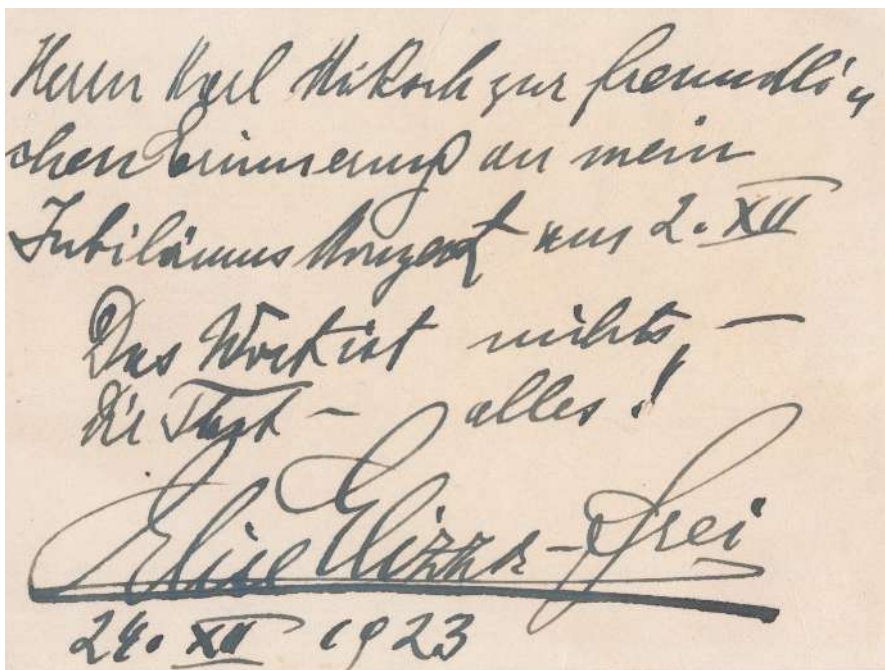 Herrn Karl Mikosch zur freundli„
chen Erinnerung an mein
Jubiläums Konzert vom 2. XII
Das Wort ist nichts, —
Die That — alles!
Elise Elizza - Frei
24. XII 1923